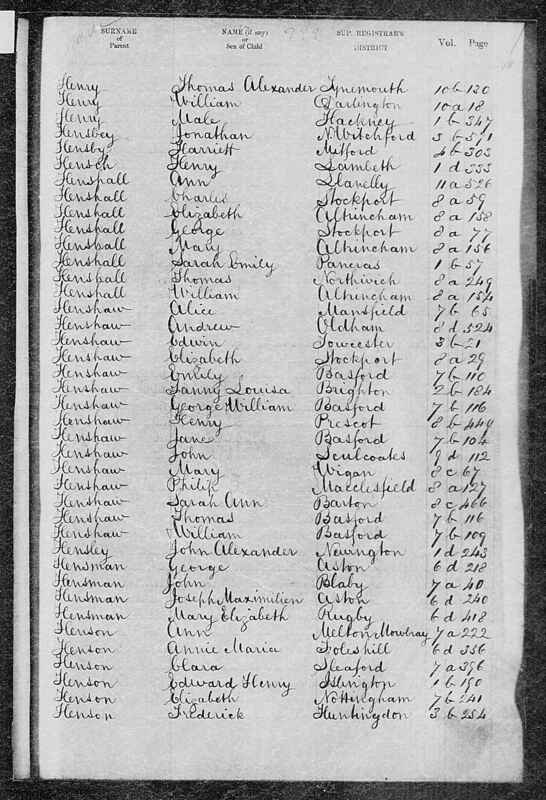 SURNAME of Parent NAME (if any) or Sex of Child SUP. REGISTRAR'S DISTRICT Vol. Page
Henry Thomas Alexander Tynemouth 10 b 130
Henry William Darlington 10 a 18
Henry Male Hackney 1 b 347
Hensbey Jonathan N Witchford 3 b 571
Hensby Harriett Mitford 4 b 303
Hensch Henry Lambeth 1 d 333
Henshall Ann Llanelly 11 a 526
Henshall Charles Stockport 8 a 59
Henshall Elizabeth Altrincham 8 a 158
Henshall George Stockport 8 a 77
Henshall Mary Altrincham 8 a 156
Henshall Sarah Emily Pancras 1 b 57
Henshall Thomas Northwich 8 a 249
Henshall William Altrincham 8 a 154
Henshaw Alice Mansfield 7 b 65
Henshaw Andrew Oldham 8 d 524
Henshaw Edwin Towcester 3 b 21
Henshaw Elizabeth Stockport 8 a 29
Henshaw Emily Basford 7 b 110
Henshaw Fanny Louisa Brighton 2 b 184
Henshaw George William Basford 7 b 116
Henshaw Henry Prescot 8 b 449
Henshaw Jane Basford 7 b 104
Henshaw John Sculcoates 9 d 112
Henshaw Mary Wigan 8 c 67
Henshaw Philip Macclesfield 8 a 127
Henshaw Sarah Ann Barton 8 c 466
Henshaw Thomas Basford 7 b 116
Henshaw William Basford 7 b 109
Hensley John Alexander Newington 1 d 243
Hensman George Aston 6 d 218
Hensman John Blaby 7 a 40
Hensman Joseph Maximilien Aston 6 d 240
Hensman Mary Elizabeth Rugby 6 d 418
Henson Ann Melton Mowbray 7 a 222
Henson Annie Maria Foleshill 6 d 356
Henson Clara Sleaford 7 a 396
Henson Edward Henry Islington 1 b 190
Henson Elizabeth Nottingham 7 b 241
Henson Frederick Huntingdon 3 b 254